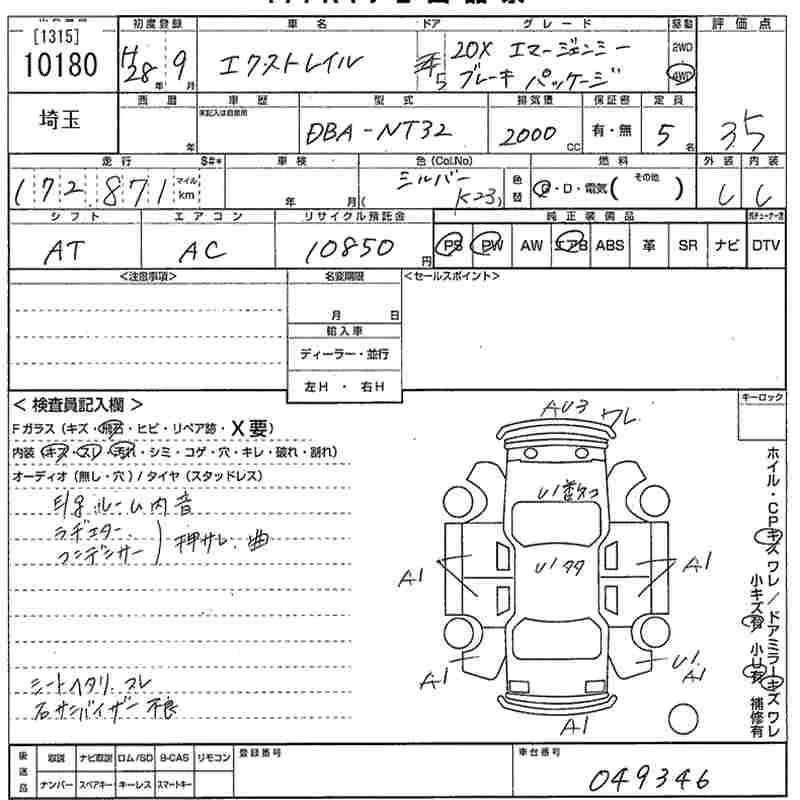 [1315]
10180
埼玉
初度登録
H28年 9月
車名
エクストレイル
ドア
5
グレード
20X エマージェンシー
ブレーキ パッケージ
駆動
2WD
4WD
評価点
3.5
西暦
年
車歴
型式
DBA-NT32
排気量
2000 CC
保証書
有・無
定員
5名
走行
172,871
マイル
km
$#*
車検
年 月
色(Col.No)
シルバー
( K23 )
色替
燃料
G・D・電気( その他 )
外装
し
内装
し
シフト
AT
エアコン
AC
リサイクル預託金
10850円
純正装備品
PS PW AW エアB ABS 革 SR ナビ DTV
<注意事項>
名変期限
月 日
輸入車
ディーラー・並行
左H ・ 右H
<セールスポイント>
< 検査員記入欄 >
Fガラス(キズ・飛石・ヒビ・リペア跡・X要)
内装(キズ・スレ・汚れ・シミ・コゲ・穴・キレ・破れ・割れ)
オーディオ(無し・穴)/タイヤ(スタッドレス)
ルーム内音
ラヂエター
コンデンサー
押サレ.曲
シートヘタリ.スレ
右サンバイザー不良
キーロック
AU3
ワレ
U1数コ
U1タタ
A1
A1
A1
U1.
A1
A1
ホイル・CPキズワレ/ドアミラーキズワレ
小キズ有 小U有 補修有
後送品
取説 ナビ取説 ロム/SD B-CAS リモコン
ナンバー スペアキー キーレス スマートキー
登録番号
車台番号
049346